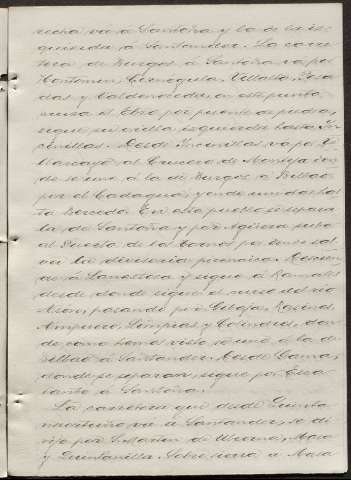 recha va á Santoña y la de la iz-
quierda á Santander. La carre-
tera de Burgos á Santoña va por
Hontomin, Cernégula, Villalta, Pesa-
das y Valdenoceda, en este punto
cruza el Ebro por puente de piedra,
sigue su orilla izquierda hasta In-
cinillas. Desde Incinillas va por
Villarcayo al Crucero de Montija don-
de se une á la de Burgos á Bilbao
por el Cadagua, yendo unidas has-
ta Bercedo. En este pueblo se separa
la de Santoña y por Agüera sube
al Puerto de los Tornos por donde sal-
va la divisoria pirenaica. Descien-
de á Lanestosa y sigue á Ramales
desde donde sigue el curso del rio
Ason, pasando por Gibaja, Rasines,
Ampuero, Limpias y Colindres, don-
de como hemos visto se une á la de
Bilbao á Santander. Desde Cama,
donde se separan, sigue por Esca-
lante á Santoña.
La carretera que desde Quinta-
naortuño va á Santander, se di-
rije por S. Martin de Ubierna, Masa
y Quintanilla Sobresierra á Masa